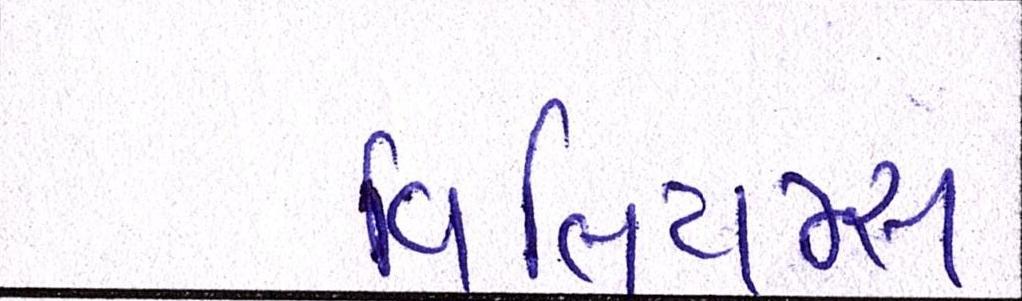 વિલિયમ્સ